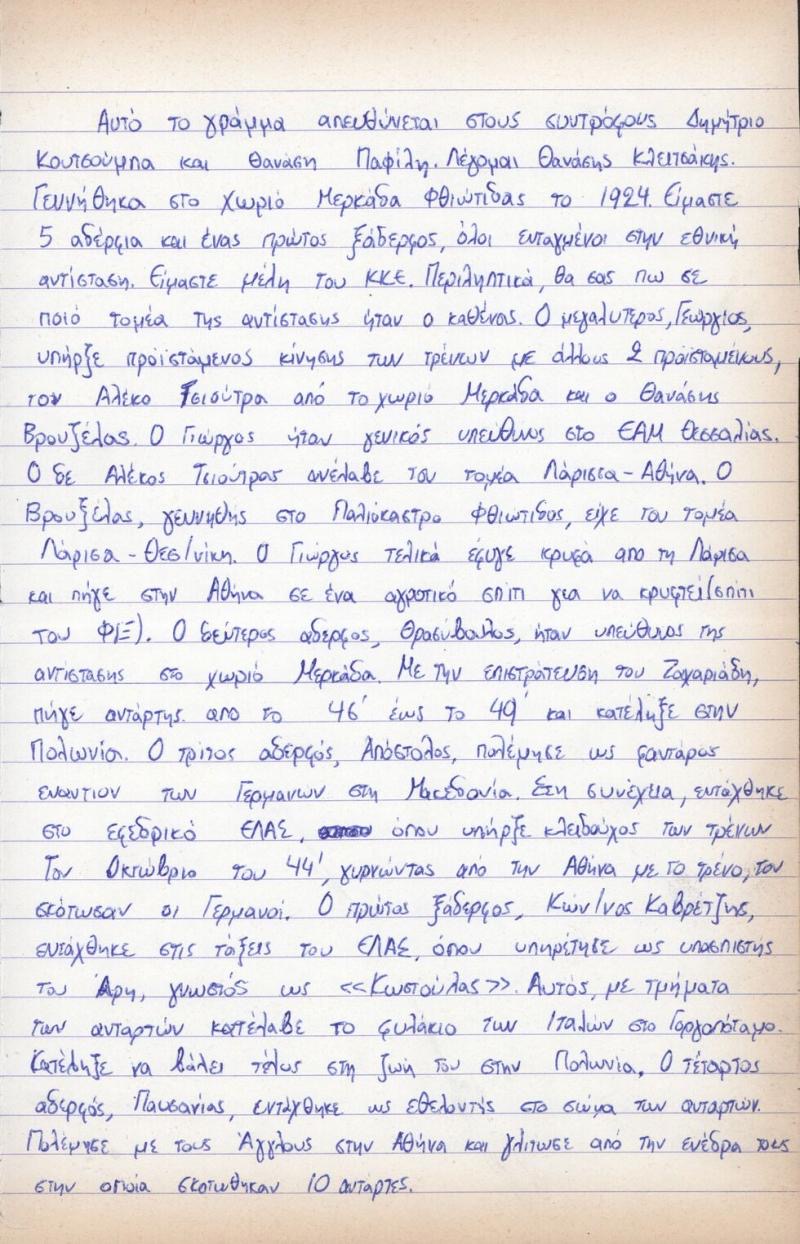 Αυτό το γράμμα απευθύνεται στους συντρόφους Δημήτριο
Κουτσούμπα και Θανάση Παφίλη. Λέγομαι Θανάσης Κλειτσάκης.
Γεννήθηκα στο χωριό Μερκάδα Φθιώτιδας το 1924. Είμαστε
5 αδέρφια και ένας πρώτος ξάδερφος, όλοι ενταγμένοι στην εθνική
αντίσταση. Είμαστε μέλη του ΚΚΕ. Περιληπτικά, θα σας πω σε
ποιό τομέα της αντίστασης ήταν ο καθένας. Ο μεγαλυτερος, Γεώργιος,
υπήρξε προϊστάμενος κίνησης των τρένων με άλλους 2 προϊσταμένους,
τον Αλέκο Τσιούτρα από το χωριό Μερκάδα και ο Θανάσης
Βρουζέλας. Ο Γιώργος ήταν γενικός υπεύθυνος στο ΕΑΜ Θεσσαλίας.
Ο δε Αλέκος Τσιούτρας ανέλαβε τον τομέα Λάρισσα - Αθήνα. Ο
Βρουξέλας, γεννηθής στο Παλιόκαστρο Φθιωτιδος, είχε τον τομέα
Λάρισα - Θεσ/νίκη. Ο Γιώργος τελικά έφυγε κρυφά απο τη Λάρισα
και πήγε στην Αθήνα σε ένα αγροτικό σπίτι για να κρυφτεί (σπίτι
του ΦΙΞ). Ο δεύτερος αδερφος, Θρασύβουλος, ήταν υπεύθυνος της
αντιστασης στο χωριό Μερκάδα. Με την επιστράτευση του Ζαχαριάδη,
πήγε αντάρτης. απο το 46' έως το 49' και κατέληξε στην
Πολωνία. Ο τρίτος αδερφός, Απόστολος, πολέμησε ως φαντάρος
εναντιον των Γερμανων στη Μακεδονία. Στη συνέχεια, εντάχθηκε
στο εφεδρικό ΕΛΑΣ, όπου υπήρξε κλειδούχος των τρένων
Τον Οκτώβριο του 44', γυρνώντας από την Αθήνα με το τρένο, τον
σκότωσαν οι Γερμανοί. Ο πρώτος ξάδερφος, Κων/νος Καβρέτζης,
εντάχθηκε στις τάξεις του ΕΛΑΣ, όπου υπηρέτησε ως υπασπιστής
του Άρη, γνωστός ως <<Κωστούλας>>. Αυτός, με τμήματα
των ανταρτών κατέλαβε το φυλάκιο των Ιταλών στο Γοργοπόταμο.
Κατέληξε να βάλει τέλος στη ζωή του στην Πολωνία. Ο τέταρτος
αδερφός, Παυσανίας, εντάχθηκε ως εθελοντής στο σώμα των ανταρτών.
Πολέμησε με τους Άγγλους στην Αθήνα και γλίτωσε από την ενέδρα τους
στην οποία σκοτωθηκαν 10 αντάρτες.